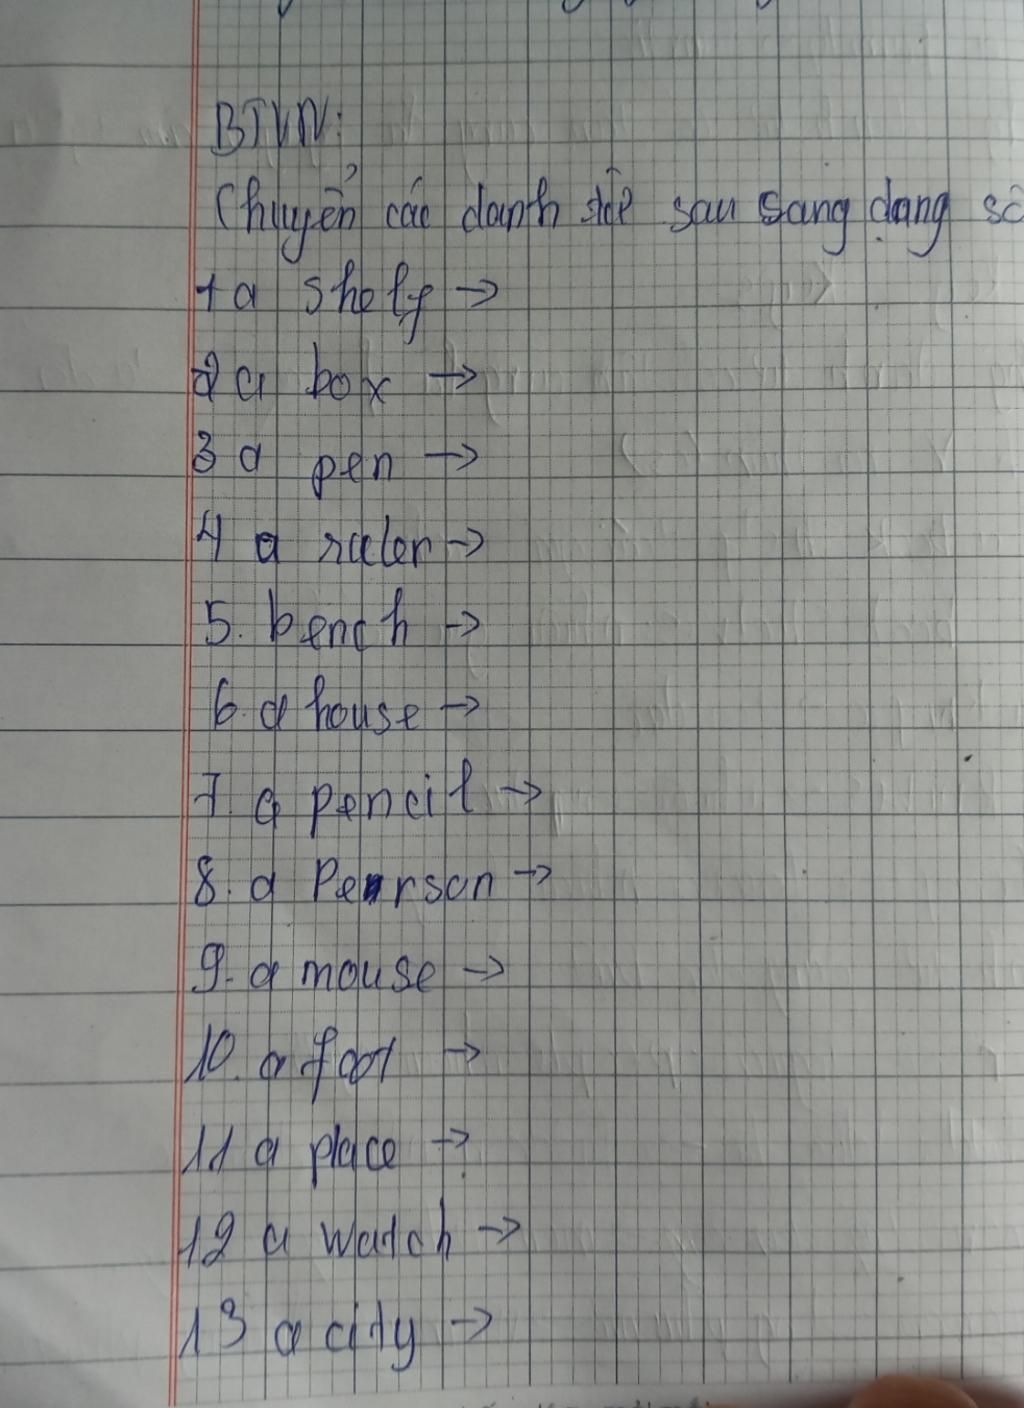 BTVN:
Chuyển các danh từ sau sang dạng số
1 a shelf →
2 a box →
3 a pen →
4 a ruler →
5. bench →
6. a house →
7. a pencil →
8. a Person →
9. a mouse →
10. a foot →
11 a place →
12 a watch →
13 a city →